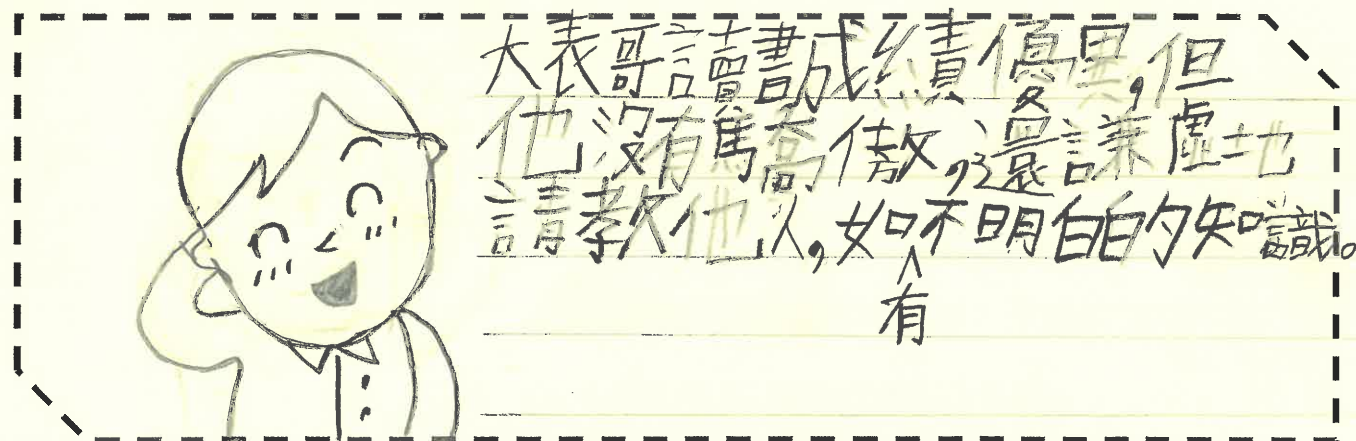 大表哥讀書成績優異,但
他沒有驕傲,還謙虛地
請教他人,如有不明白的知識。